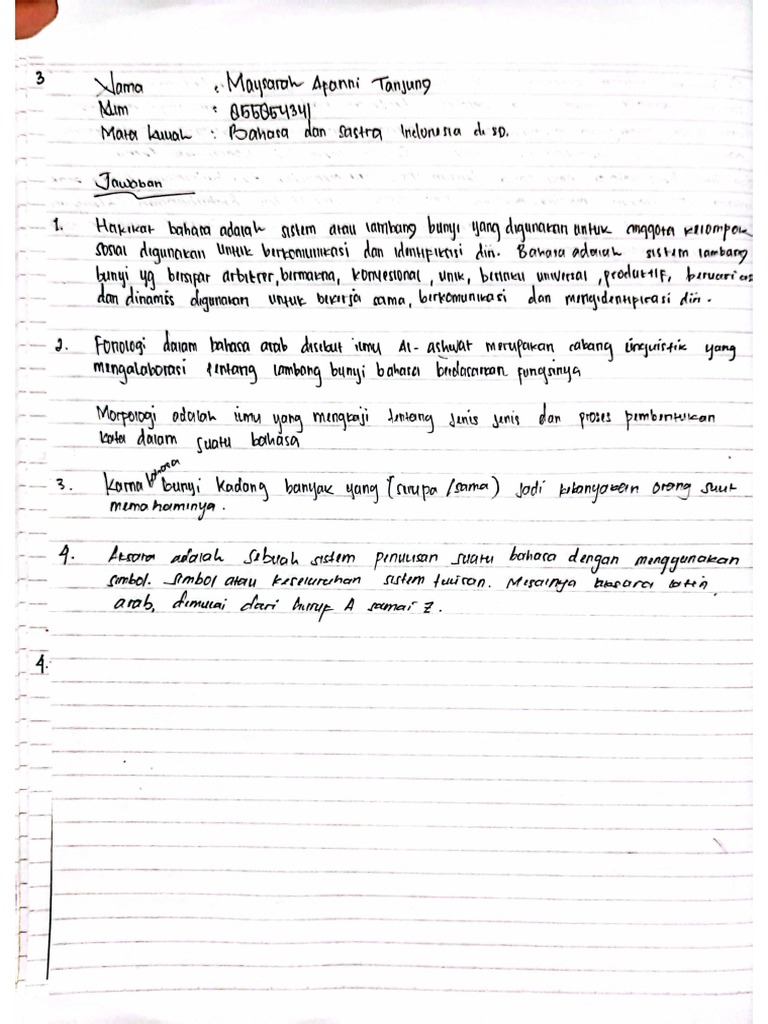 3 Nama : Maysarah Apanni Tanjung
Nim : 855854341
Mata kuliah : Bahasa dan Sastra Indonesia di SD.
Jawaban
1. Hakikat bahasa adalah sistem atau lambang bunyi yang digunakan untuk anggota kelompok
sosial digunakan untuk berkomunikasi dan identifikasi diri. Bahasa adalah sistem lambang
bunyi yg bersifat arbitrer, bermakna, konvesional, unik, berlaku universal, produktif, bervarias
dan dinamis digunakan untuk bekerja sama, berkomunikasi dan mengidentifikasi diri.
2. Fonologi dalam bahasa arab disebut ilmu Al-ashwat merupakan cabang linguistik yang
mengalaborasi tentang lambang bunyi bahasa berdasarkan fungsinya
Morfologi adalah ilmu yang mengkaji tentang jenis jenis dan proses pembentukan
kata dalam suatu bahasa
3. Karna bahasa bunyi kadang banyak yang (serupa/sama) jadi kebanyakan orang sulit
memahaminya.
4. Aksara adalah sebuah sistem penulisan suatu bahasa dengan menggunakan
simbol. Simbol atau keseluruhan sistem tulisan. Misalnya aksara latin,
arab, dimulai dari huruf A samai Z.
4.